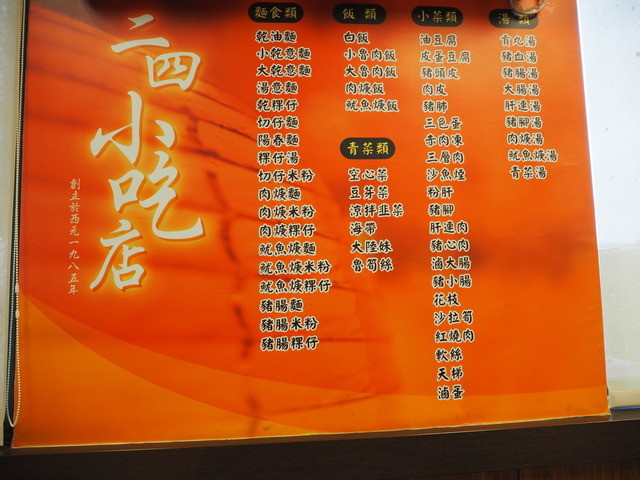 二四
小吃店
創立於西元一九八五年
麵食類
乾油麵
小乾意麵
大乾意麵
湯意麵
乾粿仔
切仔麵
陽春麵
粿仔湯
切仔米粉
肉焿麵
肉焿米粉
肉焿粿仔
魷魚焿麵
魷魚焿米粉
魷魚焿粿仔
豬腸麵
豬腸米粉
豬腸粿仔
飯類
白飯
小魯肉飯
大魯肉飯
肉焿飯
魷魚焿飯
青菜類
空心菜
豆芽菜
涼拌韭菜
海帶
大陸妹
魯筍絲
小菜類
油豆腐
皮蛋豆腐
豬頭皮
肉皮
豬肺
三色蛋
赤肉凍
三層肉
沙魚煙
粉肝
豬腳
肝連肉
豬心肉
滷大腸
豬小腸
花枝
沙拉筍
紅燒肉
軟絲
天梯
滷蛋
湯類
貢丸湯
豬血湯
豬腸湯
大腸湯
肝連湯
豬腳湯
肉焿湯
魷魚焿湯
青菜湯